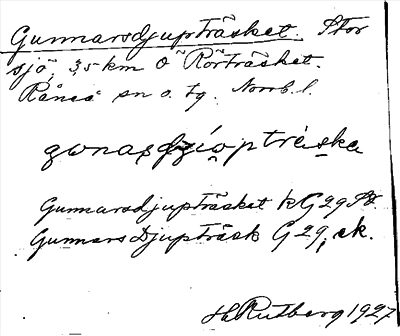 Gunnarsdjupträsket. Stor
sjö, 3,5 km Ö Rörträsket.
Råneå sn o. tg. Norrb. l.
Gunnarsdjupträsket kG29
Gunnars Djupträsk G29, ek.
H Rutberg 1927